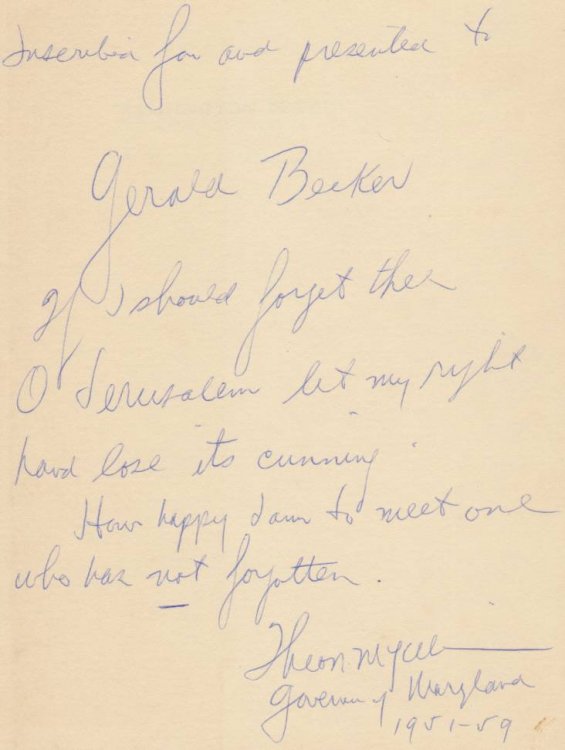 Inscribed for and presented to
Gerald Becker
If I should forget thee
O Jerusalem let my right
hand lose its cunning.
How happy I am to meet one
who has not forgotten.
Theo R McKeldin
Governor of Maryland
1951-59